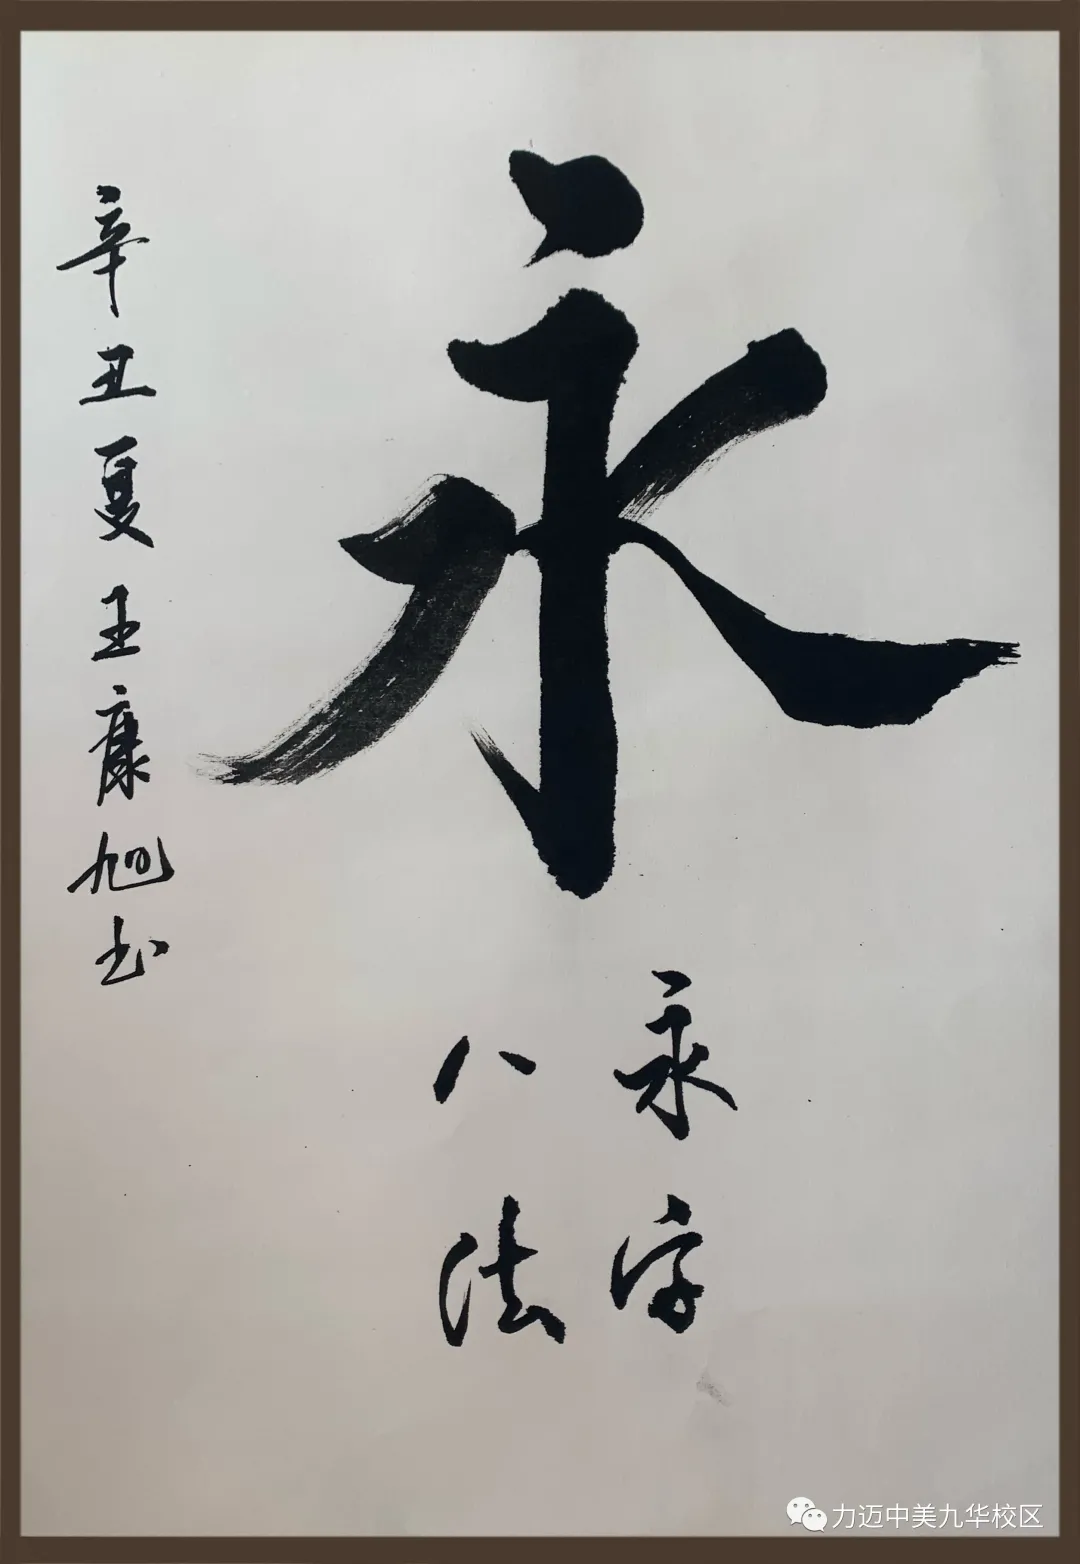 永
永字
八法
辛丑夏王康旭书
力迈中美九华校区